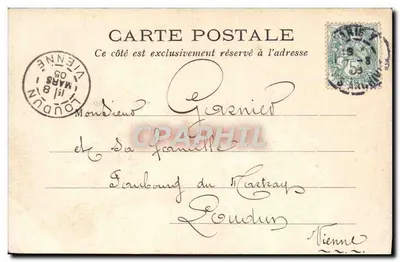 CARTE POSTALE
Ce côté est exclusivement réservé à l'adresse
LOUDUN
8
MARS
05
VIENNE
5
Monsieur Garnier
Cartepostale
et sa famille
Faubourg du Martray
Loudun
Vienne